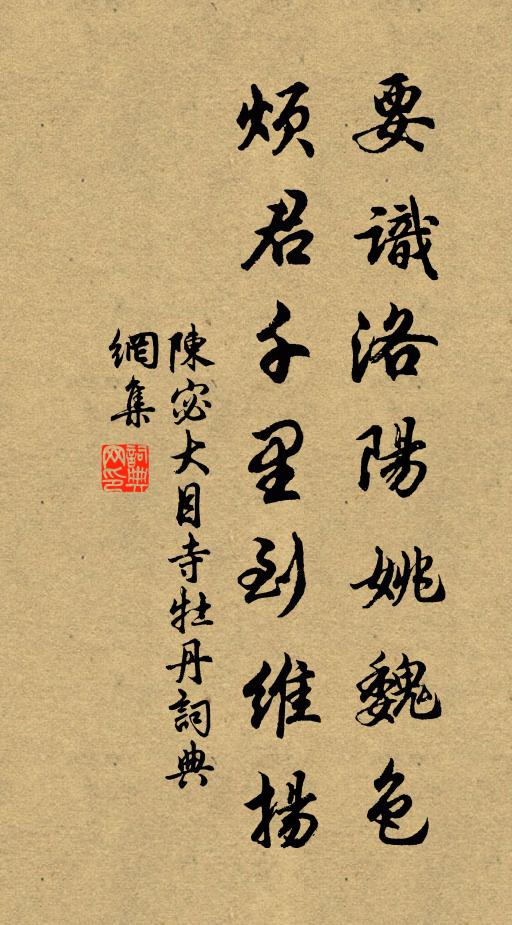 要識洛陽姚魏色
煩君千里到維揚
陳宓大目寺牡丹詞典
網集
詞典
网印